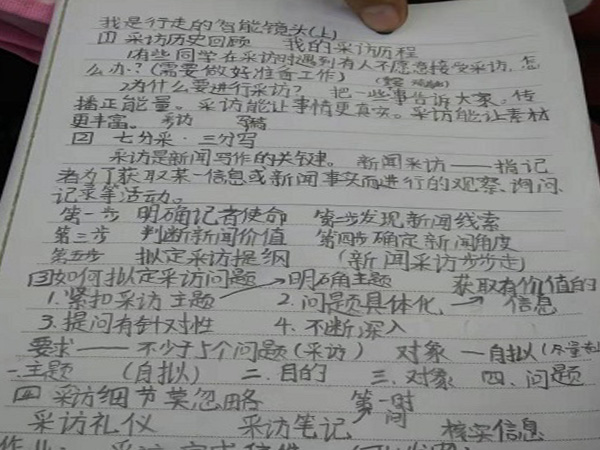 我是行走的智能镜头(上)
[1] 采访历史回顾 我的采访历程
1有些同学在采访时遇到有人不愿意接受采访,怎
么办?(需要做好准备工作)
2为什么要进行采访? 把一些事告诉大家。传
播正能量。采访能让事情更真实。采访能让素材
更丰富。 采访 写稿
[二] 七分采·三分写
采访是新闻写作的关键。 新闻采访——指记
者为了获取某一信息或新闻事实而进行的观察、询问、
记录等活动。
第一步 明确记者使命 第二步发现新闻线索
第三步 判断新闻价值 第四步确定新闻角度
第五步 拟定采访提纲 (新闻采访步步走)
[三]如何拟定采访问题 明确主题 获取有价值的
1.紧扣采访主题 2.问题具体化 → 信息
3.提问有针对性 4.不断深入
要求——不少于5个问题(采访) 对象—自拟
一.主题 (自拟) 二.目的 三.对象 四.问题
[四] 采访细节莫忽略 第一时间
采访礼仪 采访笔记 核实信息